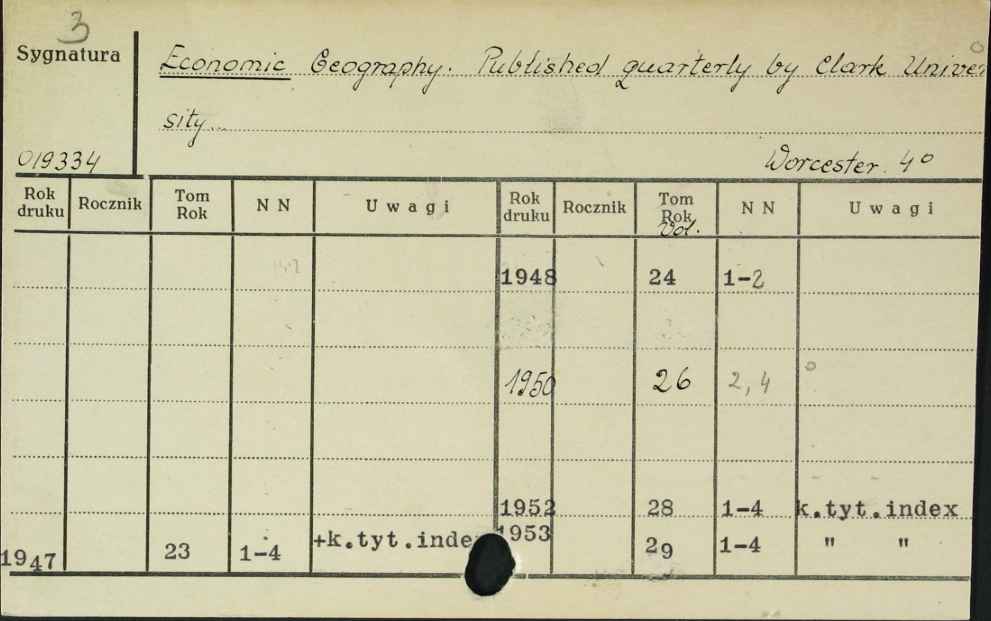 3
Sygnatura
Economic Geography. Published quarterly by Clark Univer
sity...
019334
Worcester. 4°
Rok druku Rocznik Tom Rok NN Uwagi Rok druku Rocznik Tom Rok Vol. NN Uwagi
1948 24 1-2
1950 26 2, 4
1952 28 1-4 k.tyt.index
1953 29 1-4 " "
1947 23 1-4 +k.tyt.inde